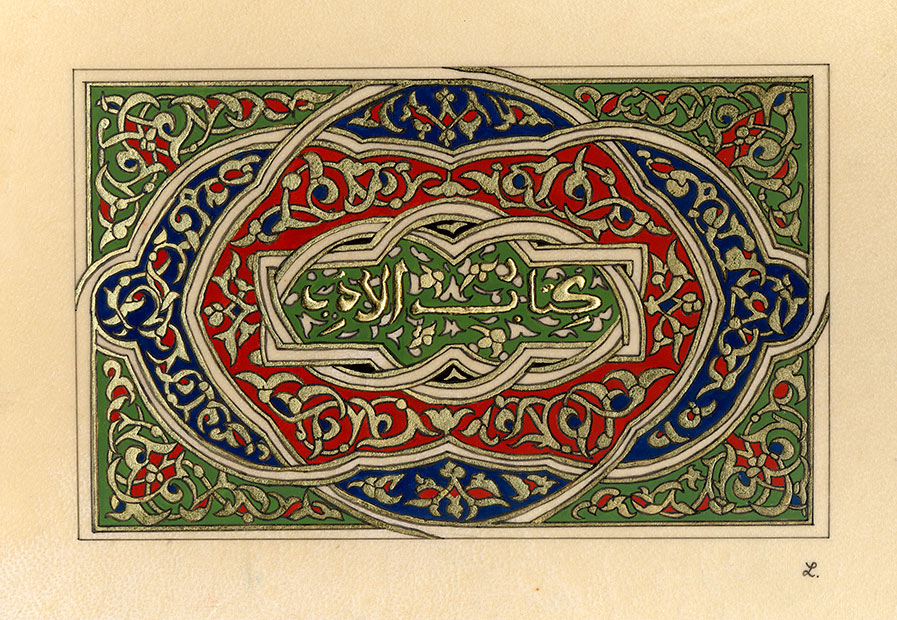 كتاب الادب
L.